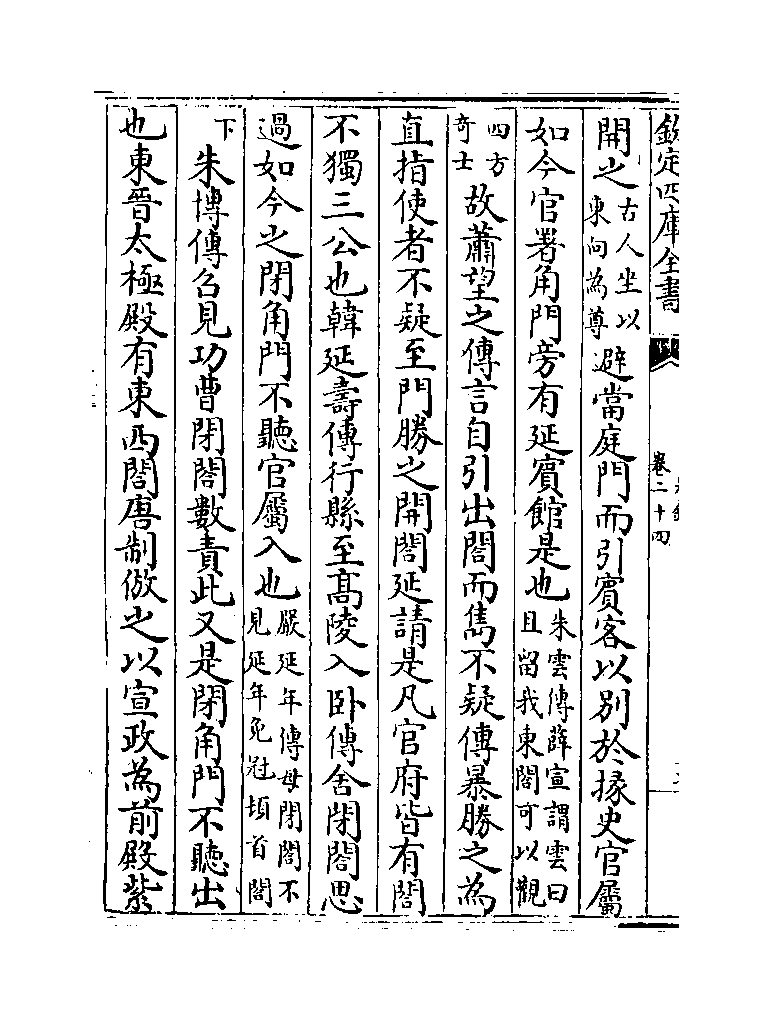 欽定四庫全書
卷二十四
開之古人坐以東向為尊避當庭門而引賓客以別於掾史官屬
如今官署角門旁有延賓館是也朱雲傳薛宣謂雲曰且留我東閤可以觀
四方奇士故蕭望之傳言自引出閤而雋不疑傳暴勝之為
直指使者不疑至門勝之開閤延請是凡官府皆有閤
不獨三公也韓延壽傳行縣至髙陵入卧傳舍閉閤思
過如今之閉角門不聽官屬入也嚴延年傳母閉閤不見延年免冠頓首閤
下朱博傳召見功曹閉閤數責此又是閉角門不聽出
也東晉太極殿有東西閤唐制倣之以宣政為前殿紫